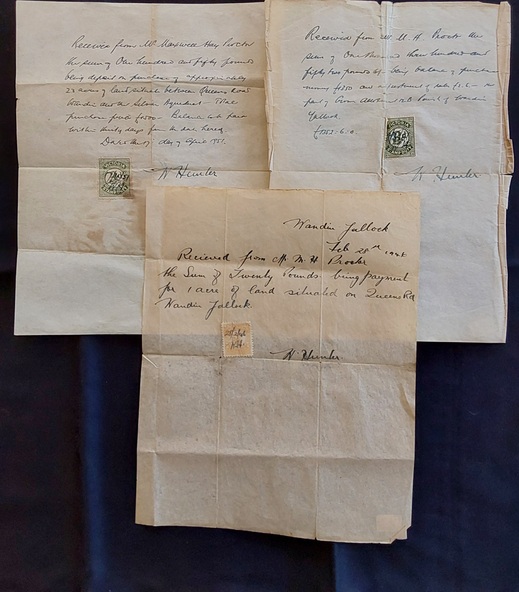 Received from Mr Maxwell Hay Procter
the sum of One hundred and fifty pounds
being deposit on purchase of approximately
23 acres of land situate between Queens Road
Wandin and the Silvan Aqueduct. Total
purchase price £1500. Balance to be paid
within thirty days from the date hereof.
Dated this day of April 1951.
W Hunter
Received from Mr M. H. Procter the
sum of One thousand three hundred and
fifty two pounds being balance of purchase
money £1350 and
part of Crown allotment Parish of Wandin
Yallock
£1352.6.0.
W Hunter
Wandin Yallock
Feb 28th 1948
Recieved from Mr M. H Procter
the Sum of Twenty Pounds being payment
for 1 acre of land situated on Queens Rd
Wandin Yallock.
W Hunter.